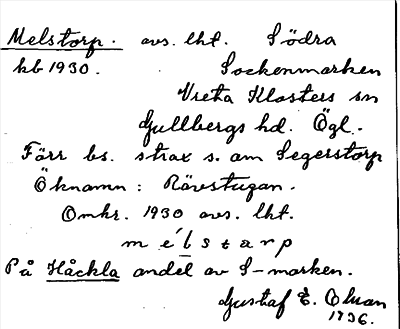 Melstorp. avs. lht. Södra
kb 1930. Sockenmarken
Vreta Klosters sn
Gullbergs hd. Ögl.
Förr bs. strax s. om Segerstorp
Öknamn: Rävstugan.
Omkr. 1930 avs. lht.
mélstarp
På Håckla andel av S-marken.
Gustaf E. Olsson
1936.